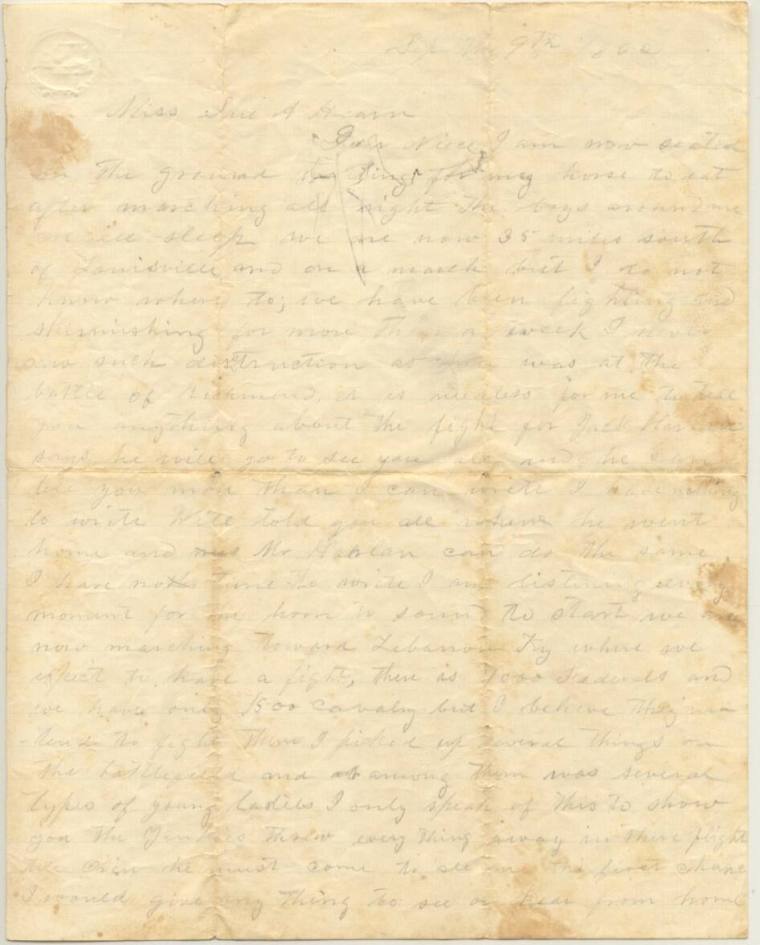 Sep the 9th 186
Miss Sue A
Dear Niece I am now seated
on the ground for my horse to eat
after marching all night the boys around me
are all sleep we are now 35 miles south
of Louisville and on a march but I do not
know where to; we have been fighting and
skirmishing for more than a week I never
saw such destruction as was at the
battle of Richmond, it is needless for me to tell
you anything about the fight for Jack
says he will go to see you all and he can
tell you more than I can write I have nothing
to write told you all when he went
home and Mr Harlan can do the same
I have not time to write I am listening every
moment for the horn to sound to start we are
now marching toward Lebanon Ky where we
expect to have a fight, there is 7000 Federals and
we have only 1500 cavalry but I believe they
to fight them I picked up several things on
the battlefield and among them was several
types of young ladies I only speak of this to show
you the Yankees threw every thing away in there flight
he must come to see me the first chance
I would give any thing to see or hear from home